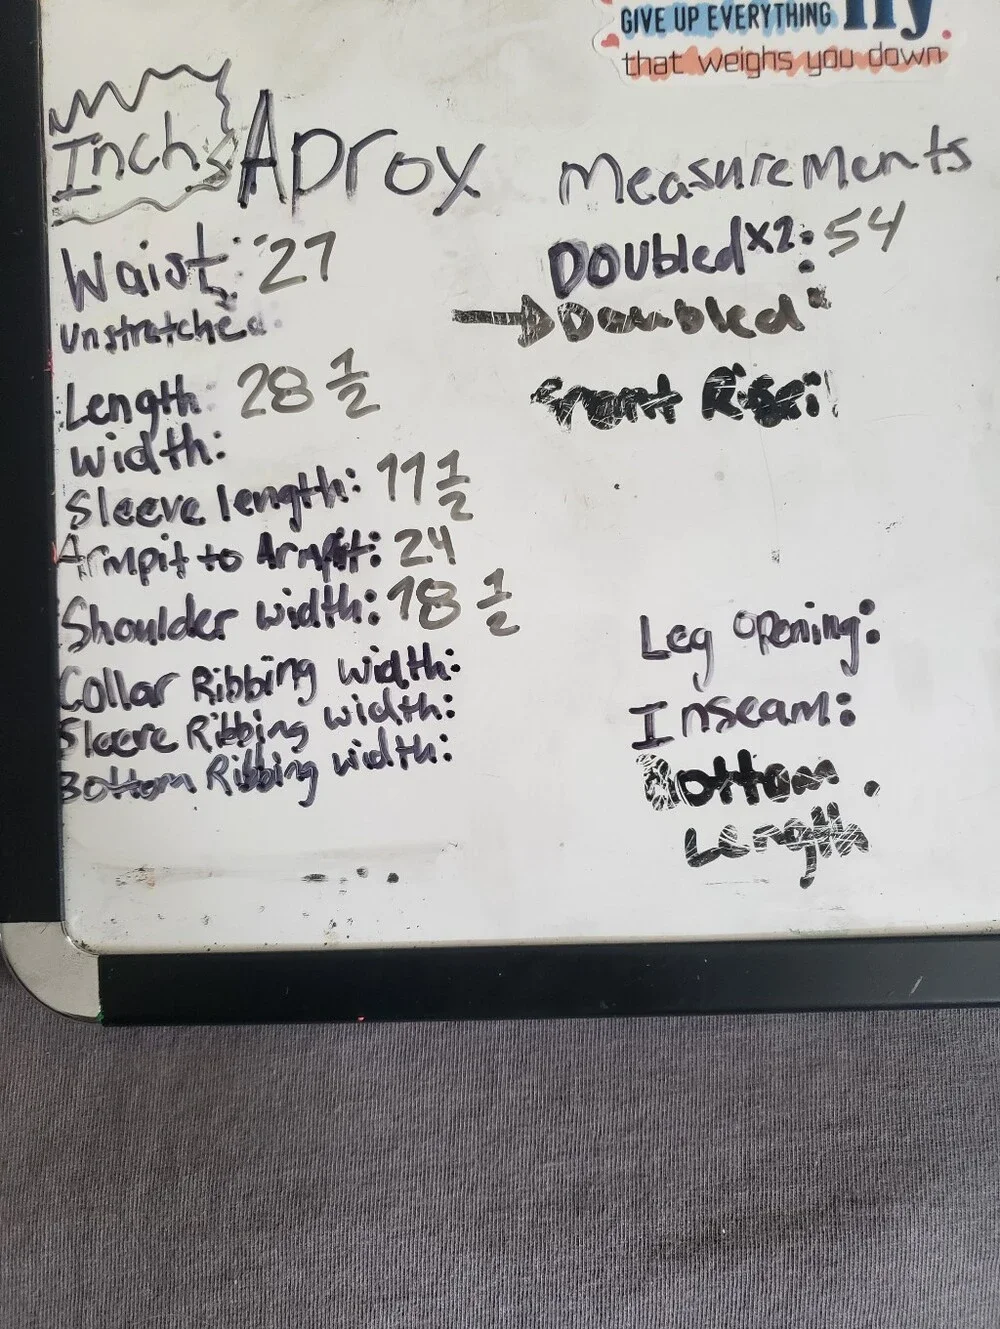 GIVE UP EVERYTHING
that weighs you down
Inchs Aprox Measurements
Waist: 27 Doubled x2: 54
Unstretched Doubled
Length: 28 1/2 Front Rise:
Width:
Sleeve length: 11 1/2
Armpit to Armpit: 24
Shoulder width: 18 1/2
Collar Ribbing width:
Sleeve Ribbing width:
Bottom Ribbing width:
Leg Opening:
Inseam:
Bottom
Length